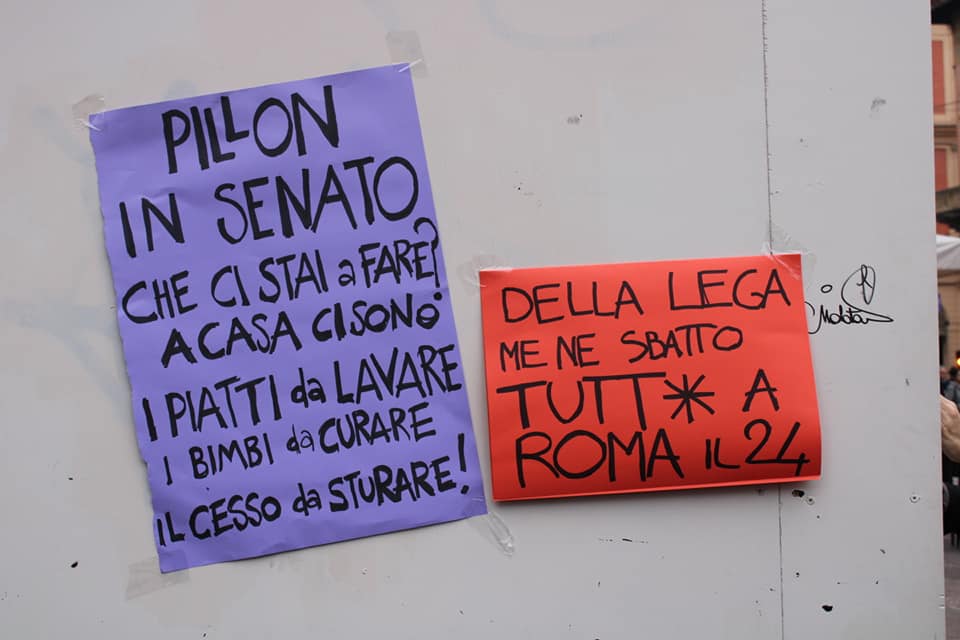 PILLON
IN SENATO
CHE CI STAI a FARE?
A CASA CI SONO
I PIATTI da LAVARE
I BIMBI da CURARE
IL CESSO da STURARE!
DELLA LEGA
ME NE SBATTO
TUTT* A
ROMA IL 24